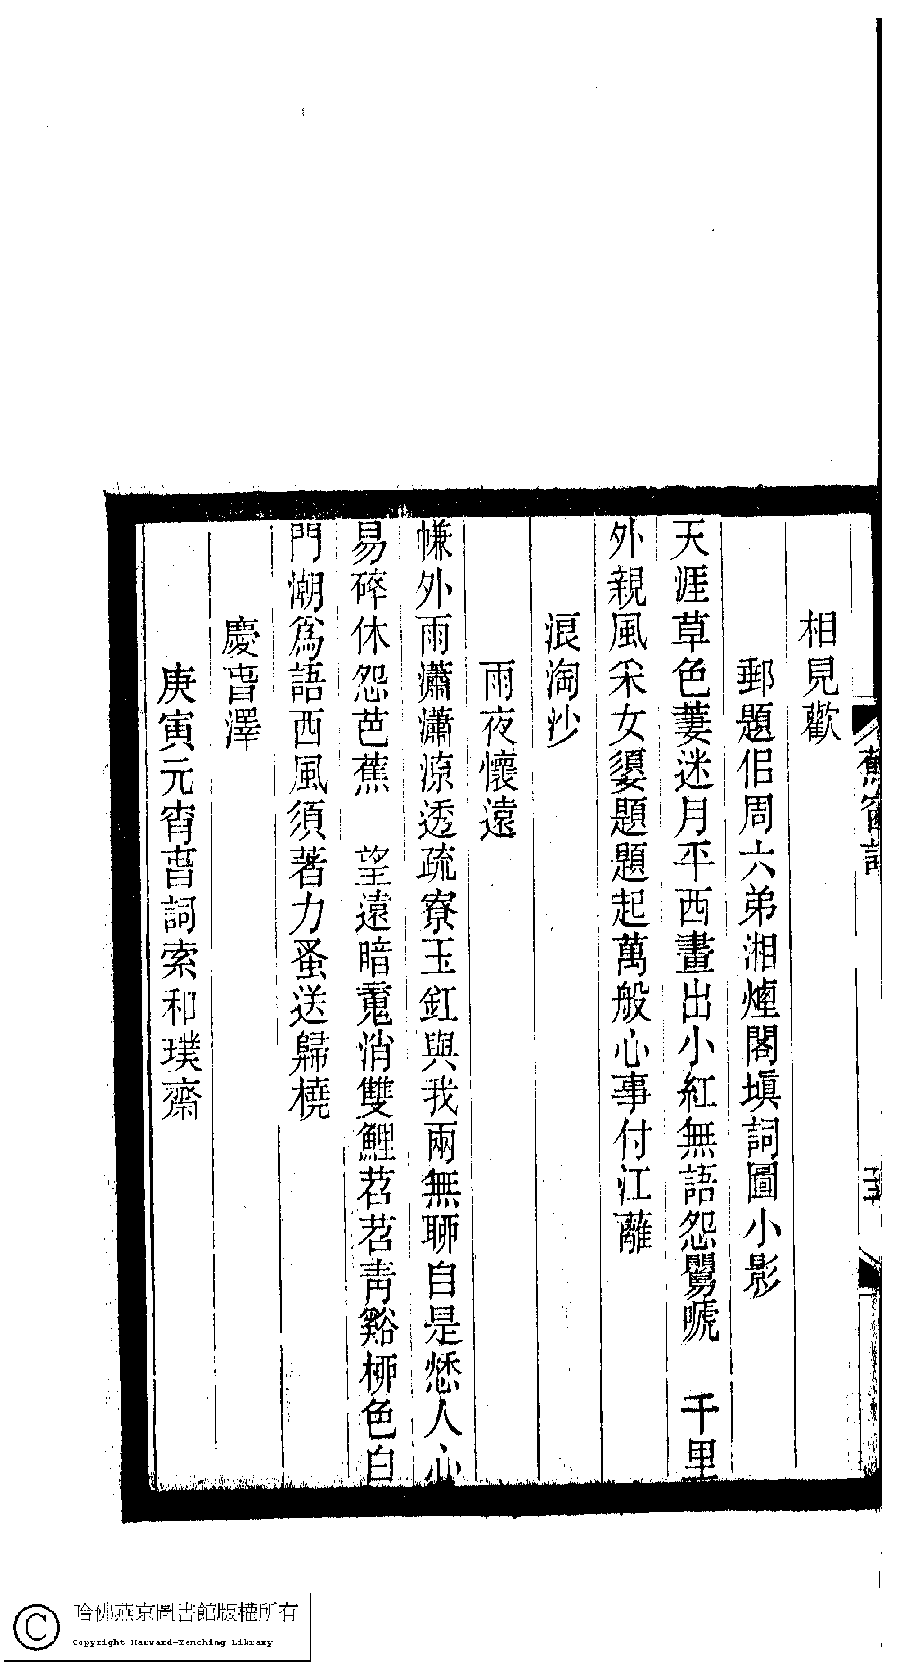 相見歡
郵題佀周六弟湘煙閣塡詞圖小影
天涯草色萋迷月平西畫出小紅無語怨鶯嗁　千里
外親風采女嬃題題起萬般心事付江蘺
浪淘沙
雨夜懷遠
㡘外雨瀟瀟涼透疏寮玉釭與我兩無聊自是愁人心
易碎休怨芭蕉　望遠暗䰟消雙鯉苕苕靑谿桺色自
門潮爲語西風須著力蚤送歸橈
慶旾澤
庚寅元宵旾詞索和璞齋
哈佛燕京圖書館版權所有
Copyright Harvard-Yenching Library